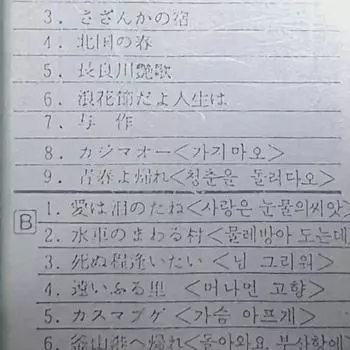 3. さざんかの宿
4. 北国の春
5. 長良川艶歌
6. 浪花節だよ人生は
7. 与 作
8. カジマオー<가지마오>
9. 青春よ帰れ<청춘을 돌려다오>
B
1. 愛は泪のたね<사랑은 눈물의씨앗>
2. 水車のまわる村<물레방아 도는데
3. 死ぬ程逢いたい<님 그리워>
4. 遠いふる里 <머나먼 고향>
5. カスマプゲ<가슴 아프게>
6. 釜山港へ帰れ<돌아와요 부산항에>